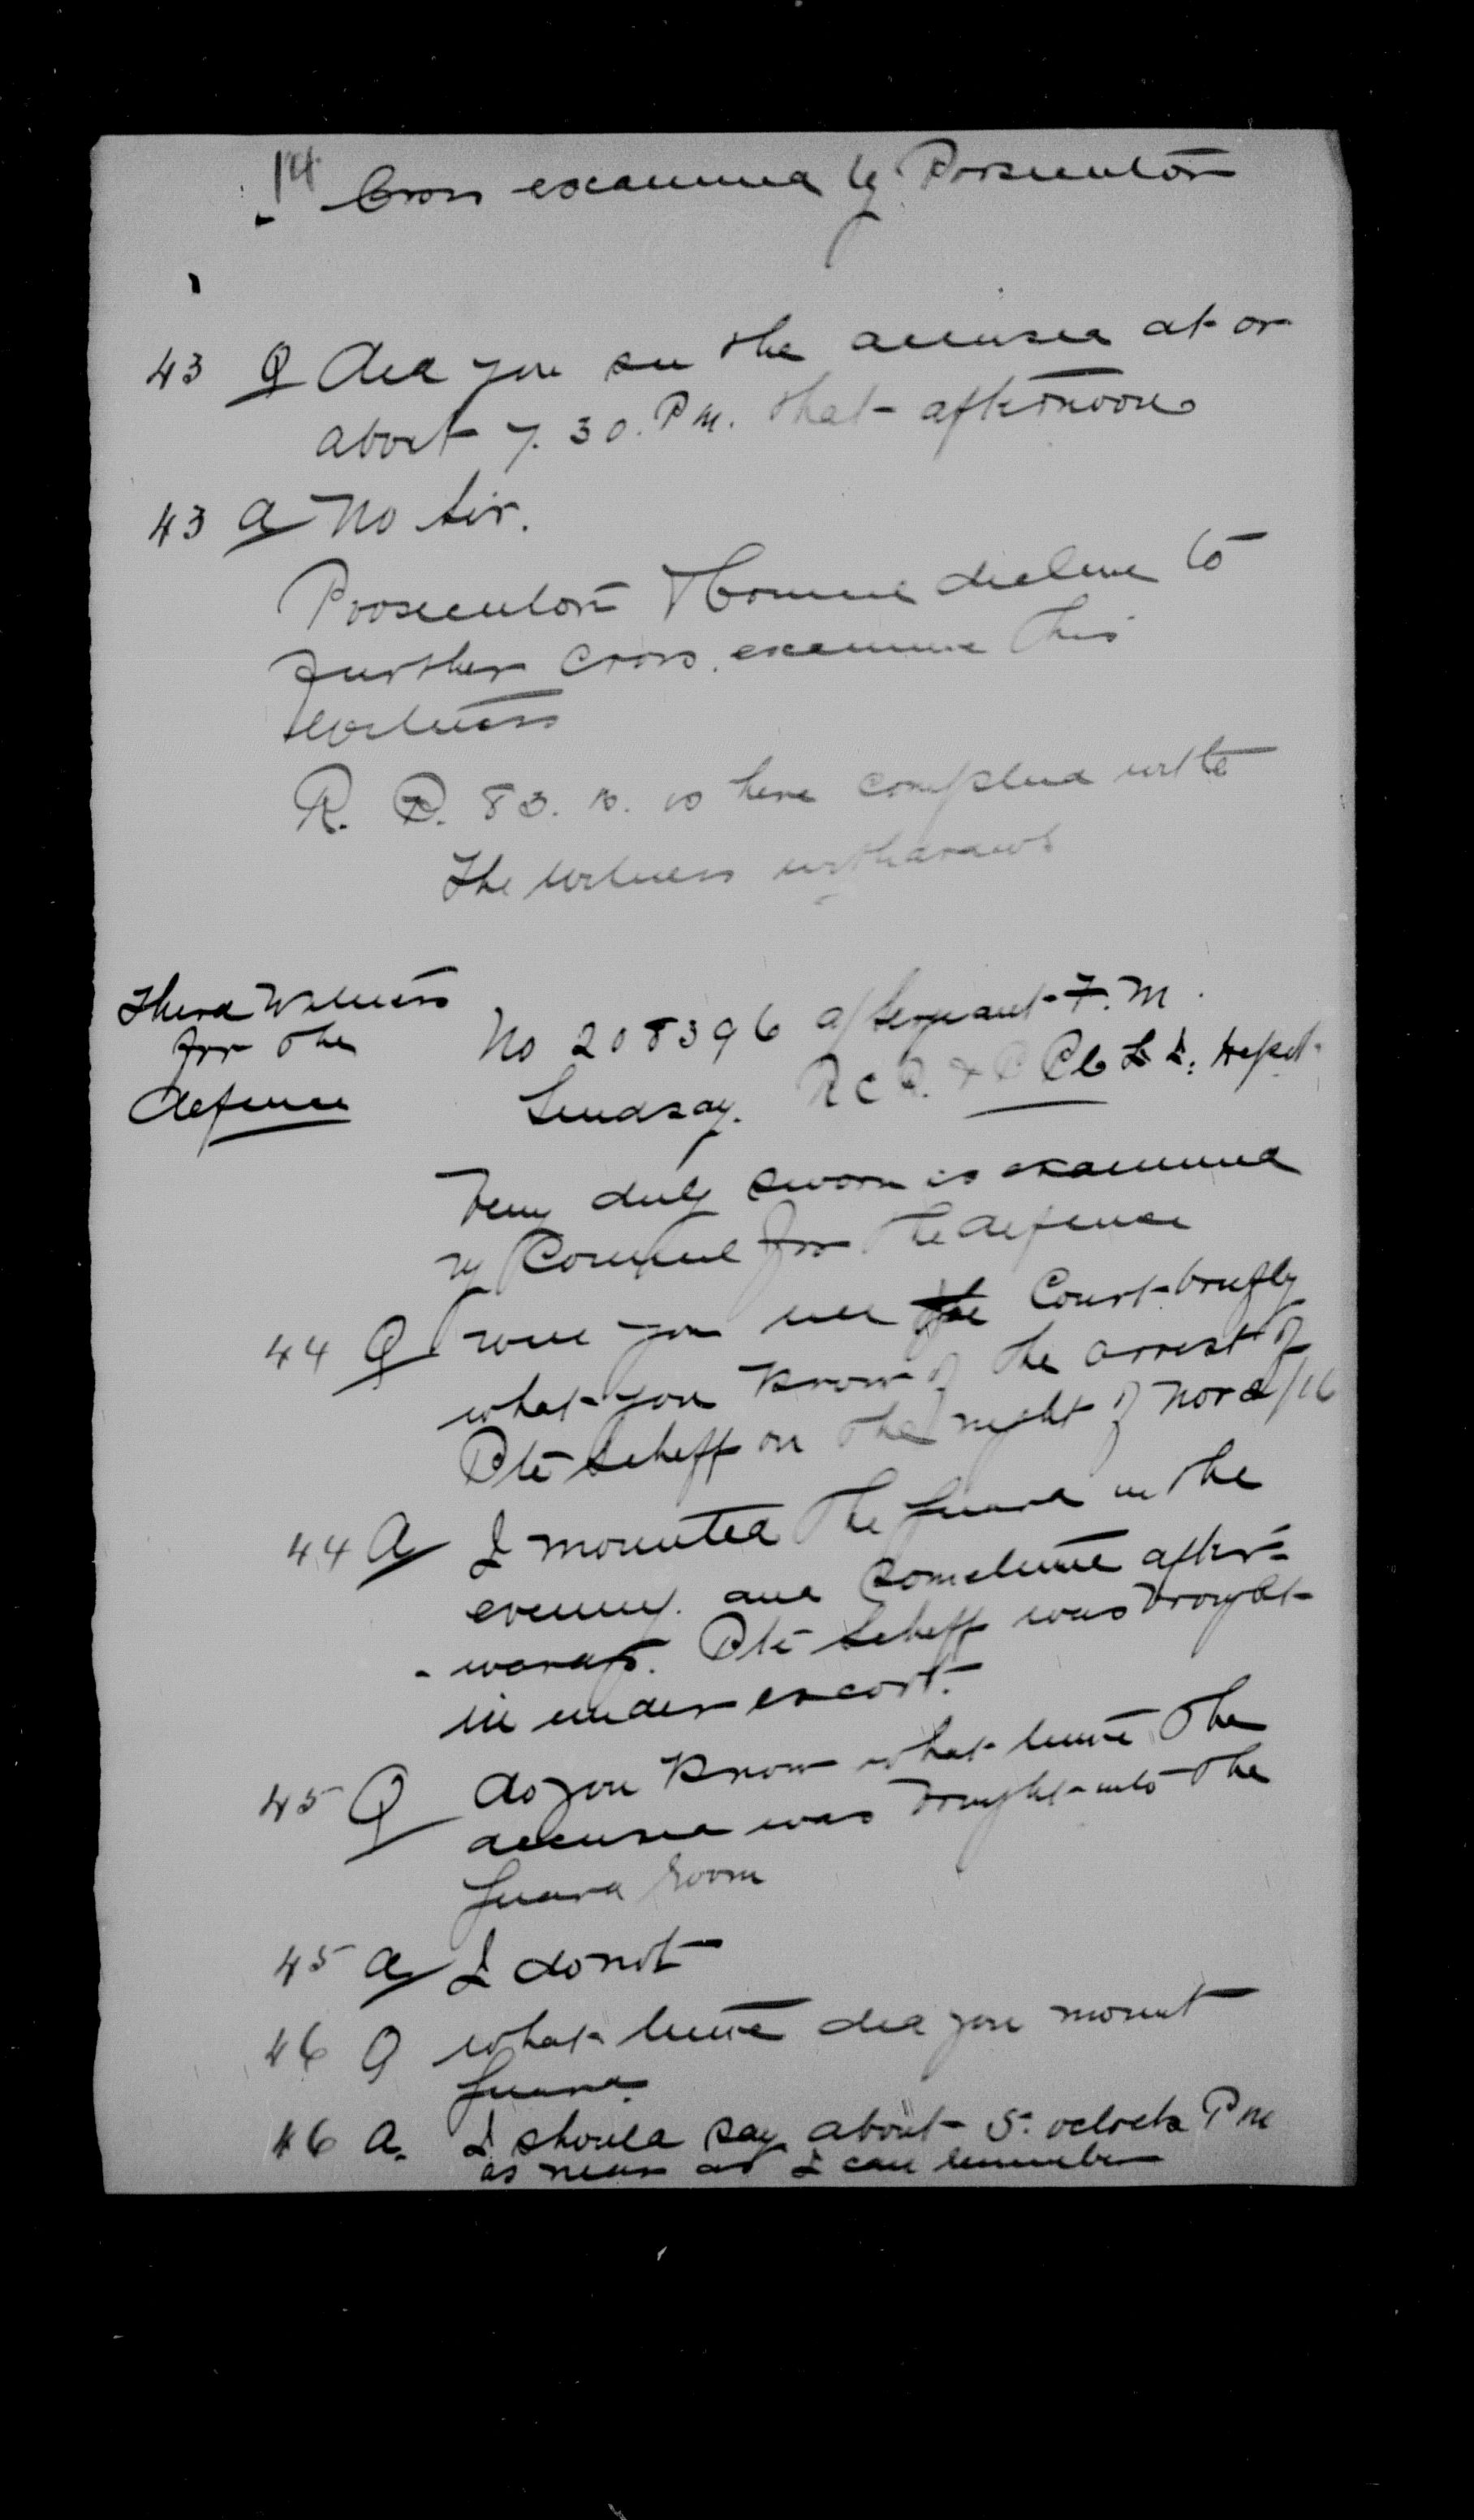 14 Cross examined by Prosecutor
43 Q Did you see the accused at or
about 7.30. P.M. that afternoon
43 A No Sir.
Prosecutor & Counsel decline to
further cross. examine this
witness
R. P. 83. B. is here complied with
The witness withdraws
Third Witness
for the
defence
No 208396 a/Sergeant F. M.
Lindsay. R C R. & P P C L I. Depot.
being duly sworn is examined
by Counsel for the defence
44 Q will you tell the Court briefly
what you know of the arrest of
Pte Scheff on the night of Nov 2/16
44 A I mounted the guard in the
evening. and sometime after-
- wards. Pte Scheff was brought
in under escort.
45 Q do you know what time the
accused was brought into the
guard room
45 A I do not
46 Q what time did you mount
guard.
46 A. I should say about 5. oclock P M
as near as I can remember